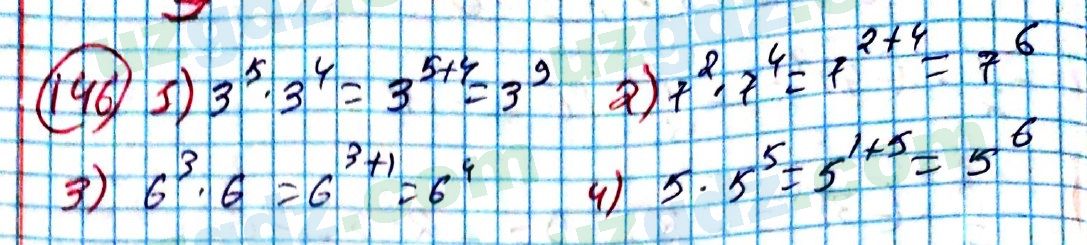 146 1) 3⁵ · 3⁴ = 3⁵⁺⁴ = 3⁹ 2) 7² · 7⁴ = 7²⁺⁴ = 7⁶
3) 6³ · 6 = 6³⁺¹ = 6⁴ 4) 5 · 5⁵ = 5¹⁺⁵ = 5⁶